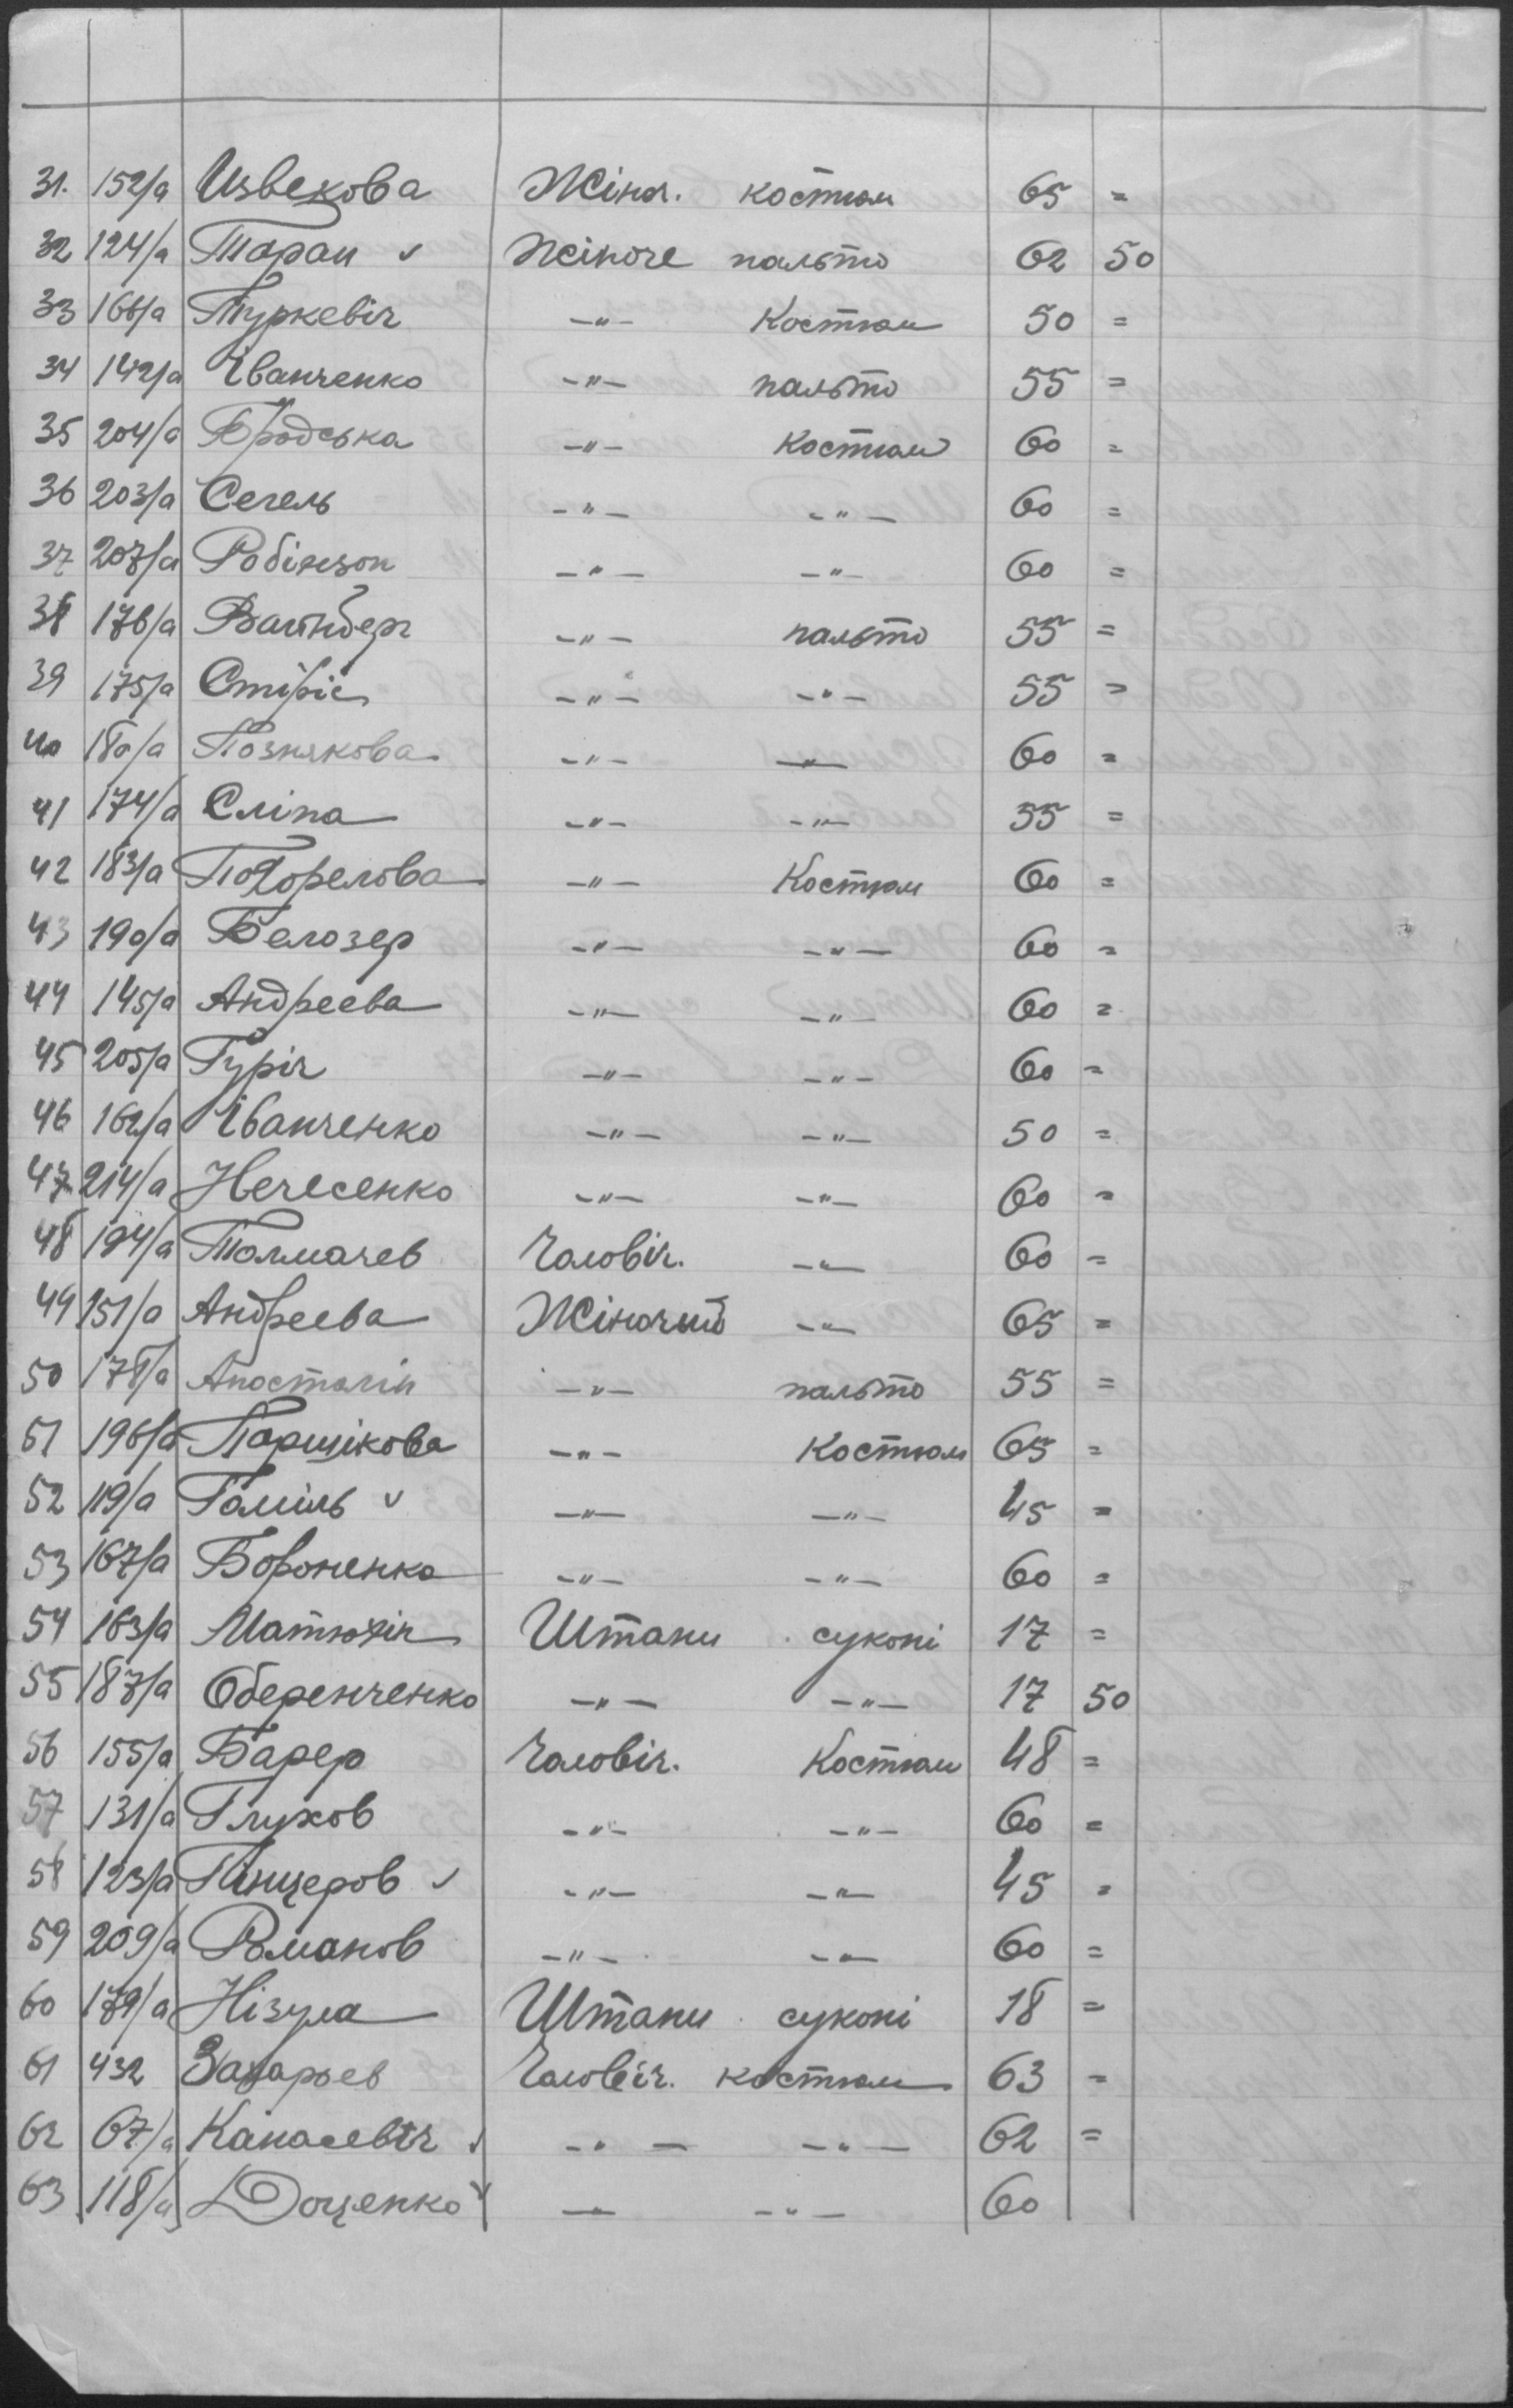 31. 152/а Извекова Жіноч. костюм 65 =
32 124/а Таран ✓ Жіноче пальто 62 50
33 166/а Туркевіч -"- Костюм 50 =
34 142/а Іванченко -"- пальто 55 =
35 204/а Бродська -"- Костюм 60 =
36 203/а Сегель -"- -"- 60 =
37 207/а Робінзон -"- -"- 60 =
38 176/а Вайнберг -"- пальто 55 =
39 175/а -"- -"- 55 =
40 180/а Познякова -"- -"- 60 =
41 174/а Сліпа -"- -"- 55 =
42 183/а Погорелова -"- Костюм 60 =
43 190/а Белозер -"- -"- 60 =
44 145/а Андреева -"- -"- 60 =
45 205/а Гуріч -"- -"- 60 =
46 162/а Іванченко -"- -"- 50 =
47 214/а Нечесенко -"- -"- 60 =
48 194/а Толмачев Чоловіч. -"- 60 =
49 151/а Андреева Жіночий -"- 65 =
50 178/а Апостолін -"- пальто 55 =
51 196/а Паршікова -"- Костюм 65 =
52 119/а ✓ -"- -"- 45 =
53 167/а Бороненко -"- -"- 60 =
54 163/а Матюхін Штани суконі 17 =
55 187/а Оберенченко -"- -"- 17 50
56 155/а Барер Чоловіч. Костюм 48 =
57 131/а Глухов -"- -"- 60 =
58 123/а Панцеров ✓ -"- -"- 45 =
59 209/а Романов -"- -"- 60 =
60 179/а Нізула Штани суконі 18 =
61 432 Захарьев Чоловіч. костюм 63 =
62 67/а Канасевіч ✓ -"- -"- 62 =
63 118/а Доценко ✓ -"- -"- 60